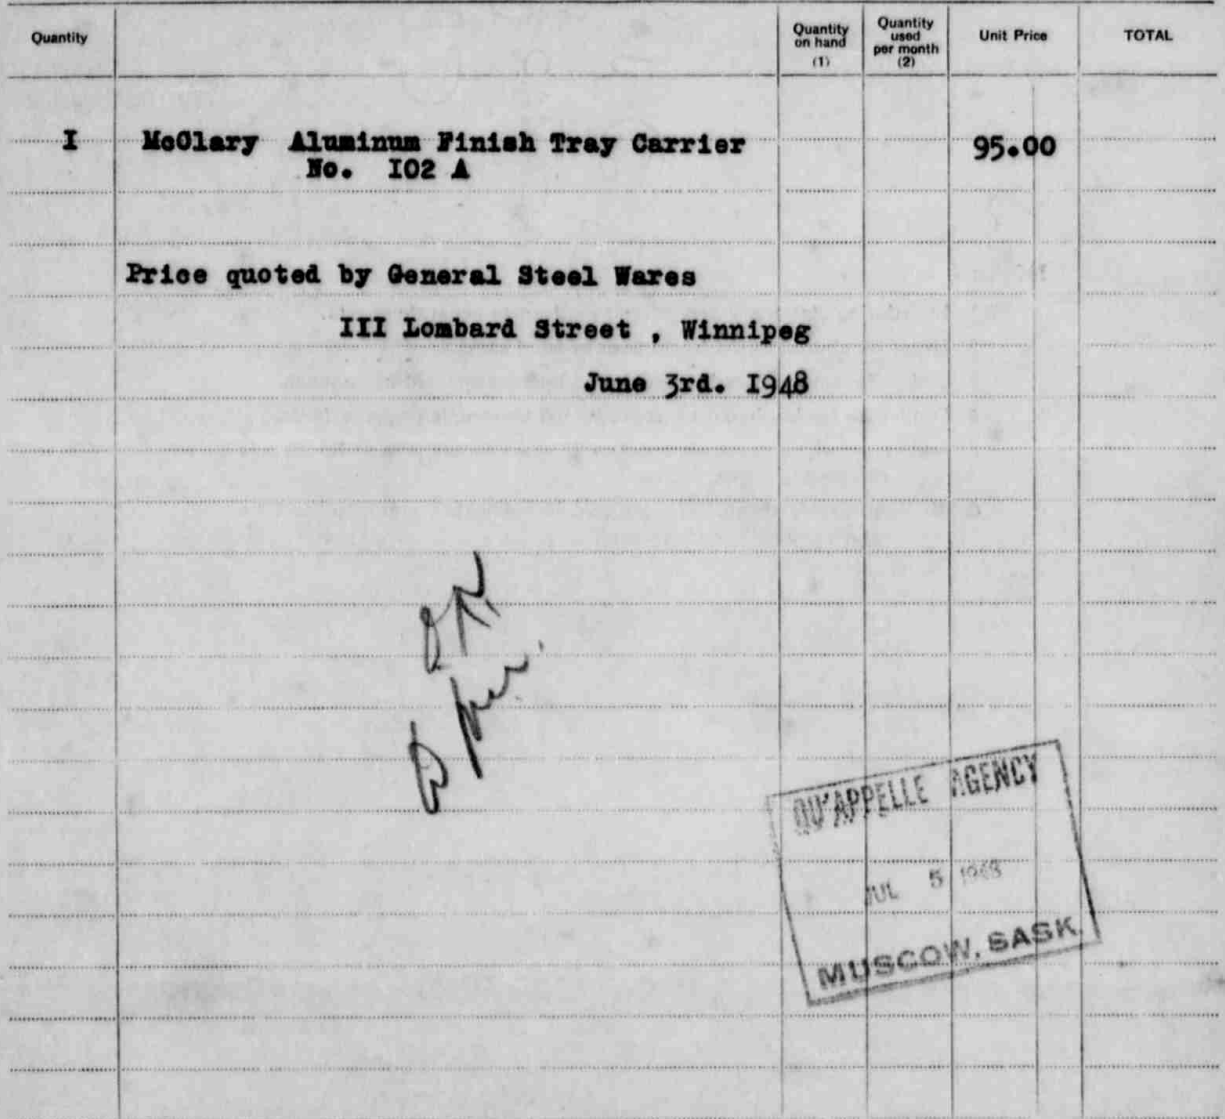 Quantity Quantity on hand (1) Quantity used per month (2) Unit Price TOTAL
I McClary Aluminum Finish Tray Carrier 95.00
No. I02 A
Price quoted by General Steel Wares
III Lombard Street , Winnipeg
June 3rd. I948
OK
QU'APPELLE AGENCY
JUL 5 1948
MUSCOW, SASK.